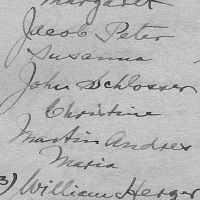 Margaret
Jacob Peter
Susanna
John Schlosser
Christine
Martin Andres
Maria
3) William Herger